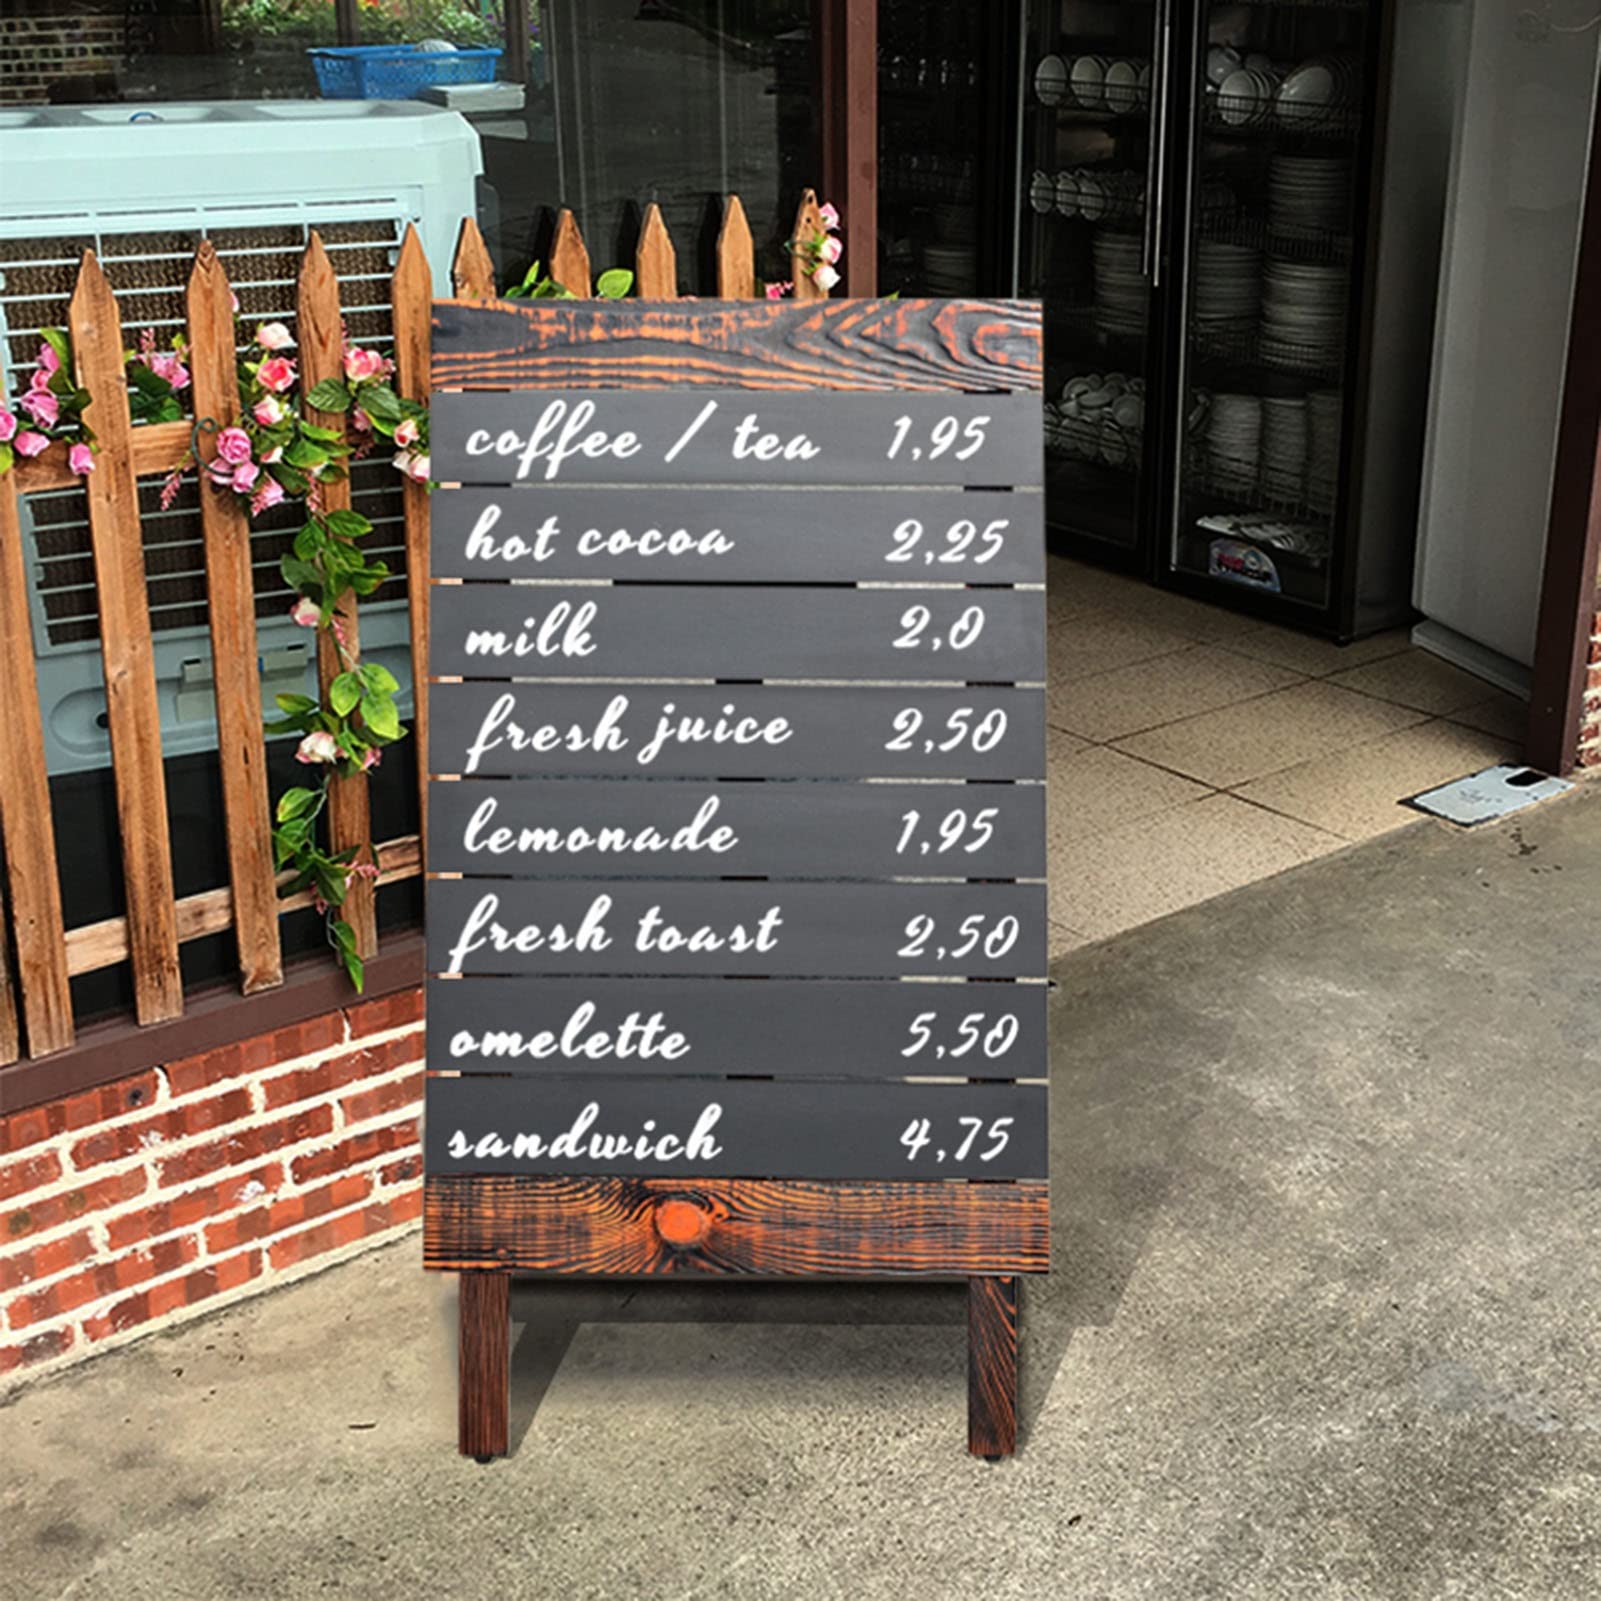 coffee / tea 1,95
hot cocoa 2,25
milk 2,0
fresh juice 2,50
lemonade 1,95
fresh toast 2,50
omelette 5,50
sandwich 4,75